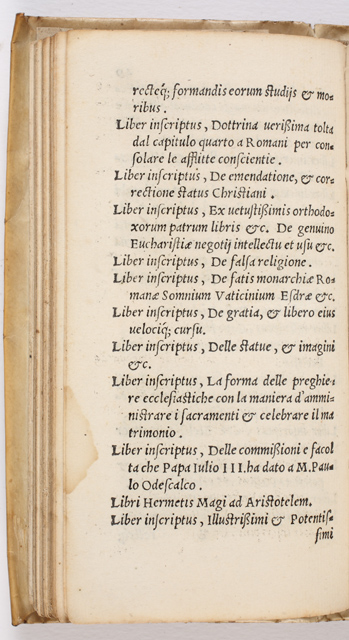 recteq́; formandis eorum studijs & mo-
ribus.
Liber inscriptus, Dottrina uerißima tolta
dal capitulo quarto a Romani per con-
solare le afflitte conscientie.
Liber inscriptus, De emendatione, & cor-
rectione status Christiani.
Liber inscriptus, Ex uetustißimis orthodo-
xorum patrum libris &c. De genuino
Eucharistiæ negotij intellectu et usu &c.
Liber inscriptus, De falsa religione.
Liber inscriptus, De fatis monarchiæ Ro-
manæ Somnium Vaticinium Esdræ &c.
Liber inscriptus, De gratia, & libero eius
uelociq́; cursu.
Liber inscriptus, Delle statue, & imagini
&c.
Liber inscriptus, La forma delle preghie-
re ecclesiastiche con la maniera d'ammi-
nistrare i sacramenti & celebrare il ma
trimonio.
Liber inscriptus, Delle commißioni e facol
ta che Papa Iulio III. ha dato a M. Pau-
lo Odescalco.
Libri Hermetis Magi ad Aristotelem.
Liber inscriptus, Illustrißimi & Potentis-
simi